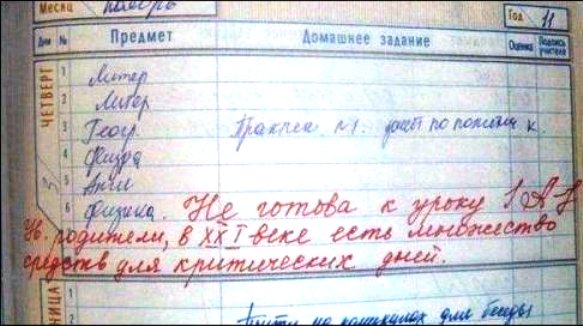 Месяц ноябрь Год 11
Дни № Предмет Домашнее задание Оценка Подпись учителя
ЧЕТВЕРГ
1 Литер
2 Литер
3 Геогр Практич. №1.
4 Физра
5 Англ
6 Физика. Не готова к уроку!
Ув. родители, в XXI веке есть множество
средств для критических дней.
НИЦА
1
2 на каникулах для беседы